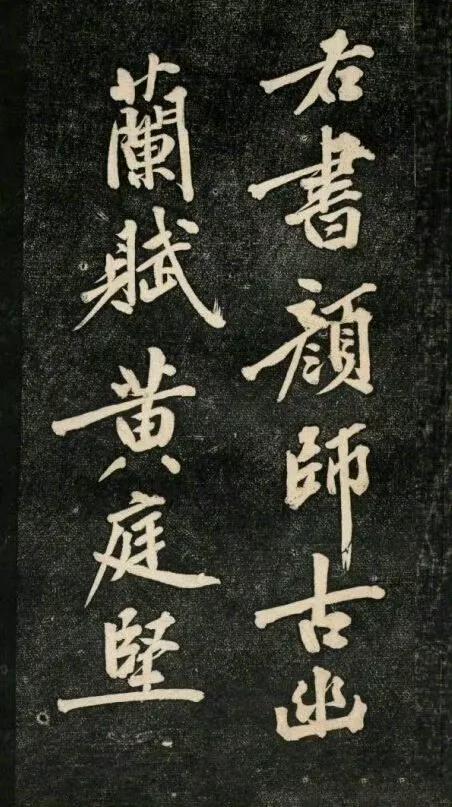 右書顔師古幽
蘭賦黃庭堅